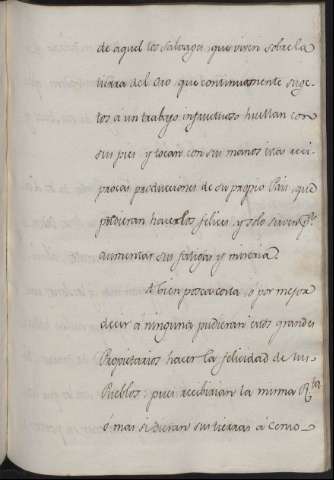 de aquellos salvages, que viven sobre la
tierra del oro que continuamente suge-
tos a un trabajo infructuoso huellan con
sus pies y tocan con sus manos estas
producciones de su propio Pais, que
pudieran hacerlos felices, y solo sirven pa
aumentar sus fatigas y miseria.
A bien poca costa, ó por mejor
decir á ninguna pudieran estos grandes
Propietarios hacer la felicidad de sus
Pueblos: pues recibirian la misma Rta
ó mas si dieran sus tierras á censo